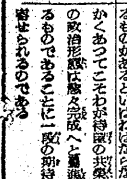 かくあつてこそわが待望の共榮
の政治形態は愈々完成へと邁進
るものであることに一段の期待
寄せられるのである